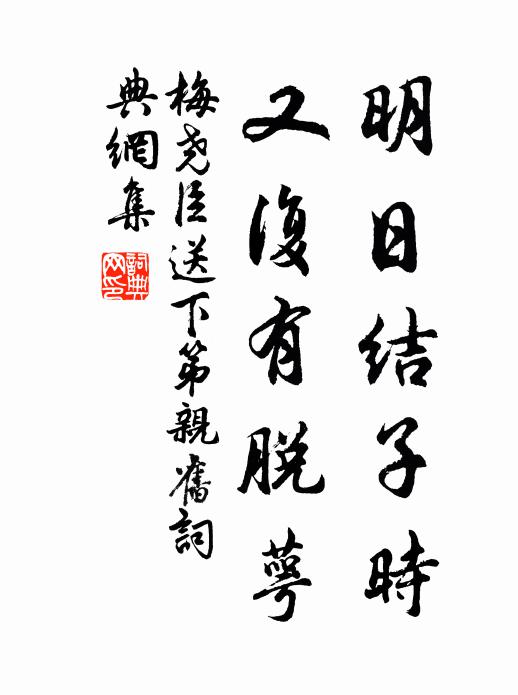 明日结子時
又復有脱萼
梅尧臣送下第親舊詞
典網集
詞典网印